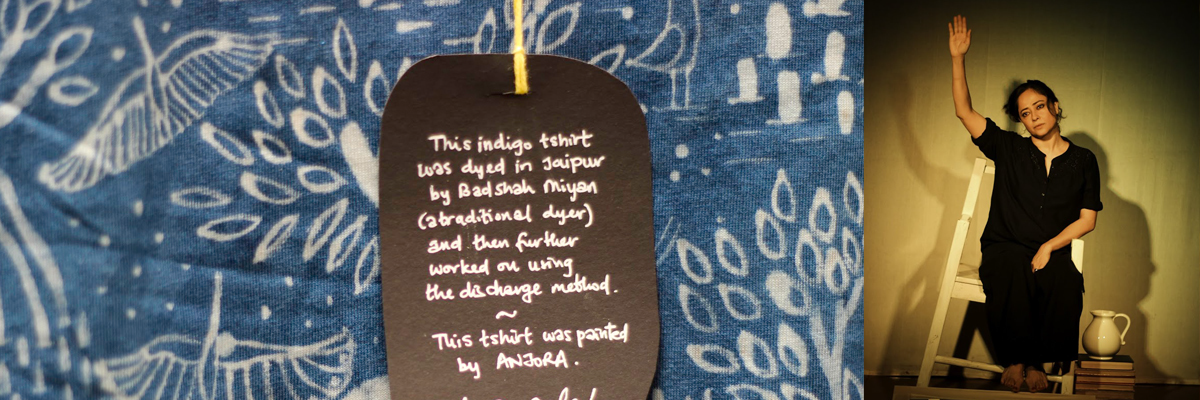 This indigo tshirt
was dyed in Jaipur
by Badshah Miyan
(a traditional dyer)
and then further
worked on using
the discharge method.
~
This tshirt was painted
by ANJORA.